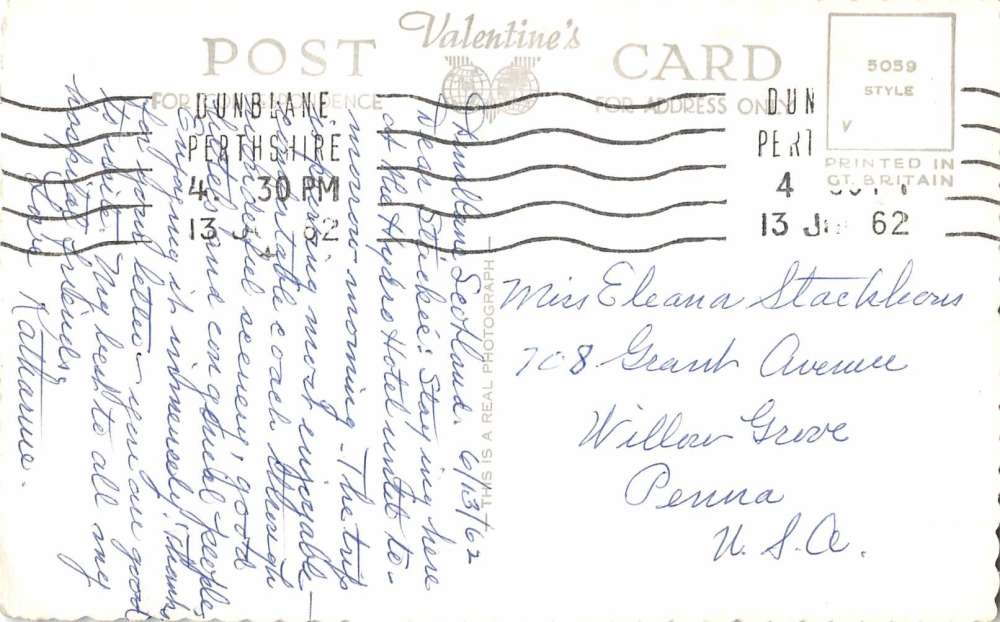 Valentine's
POST CARD
FOR CORRESPONDENCE
FOR ADDRESS ONLY
5059
STYLE
V
PRINTED IN
GT. BRITAIN
DUNBLANE,
PERTHSHIRE
4. 30 PM
13 62
DUN
PERT
4
13 62
Dunblane Scotland. 6/13/62
Dear Staying here
at the Hydro Hotel until to-
morrow morning - The trip
is being most enjoyable —
comfortable coach through
beautiful scenery, good
hotels and congenial people,
Enjoying it immensely! Thanks
for your letter - you are good
to write. My best to all my
hospital friends,
Love Katharine.
THIS IS A REAL PHOTOGRAPH
Miss Eleana Stackhous
708 Grant Avenue
Willow Grove
Penna
U. S. A.